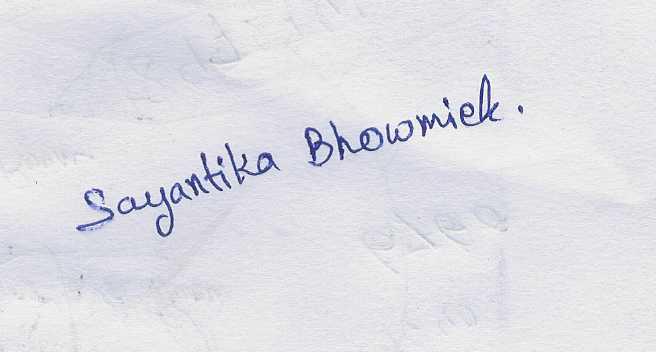 Sayantika Bhowmick.